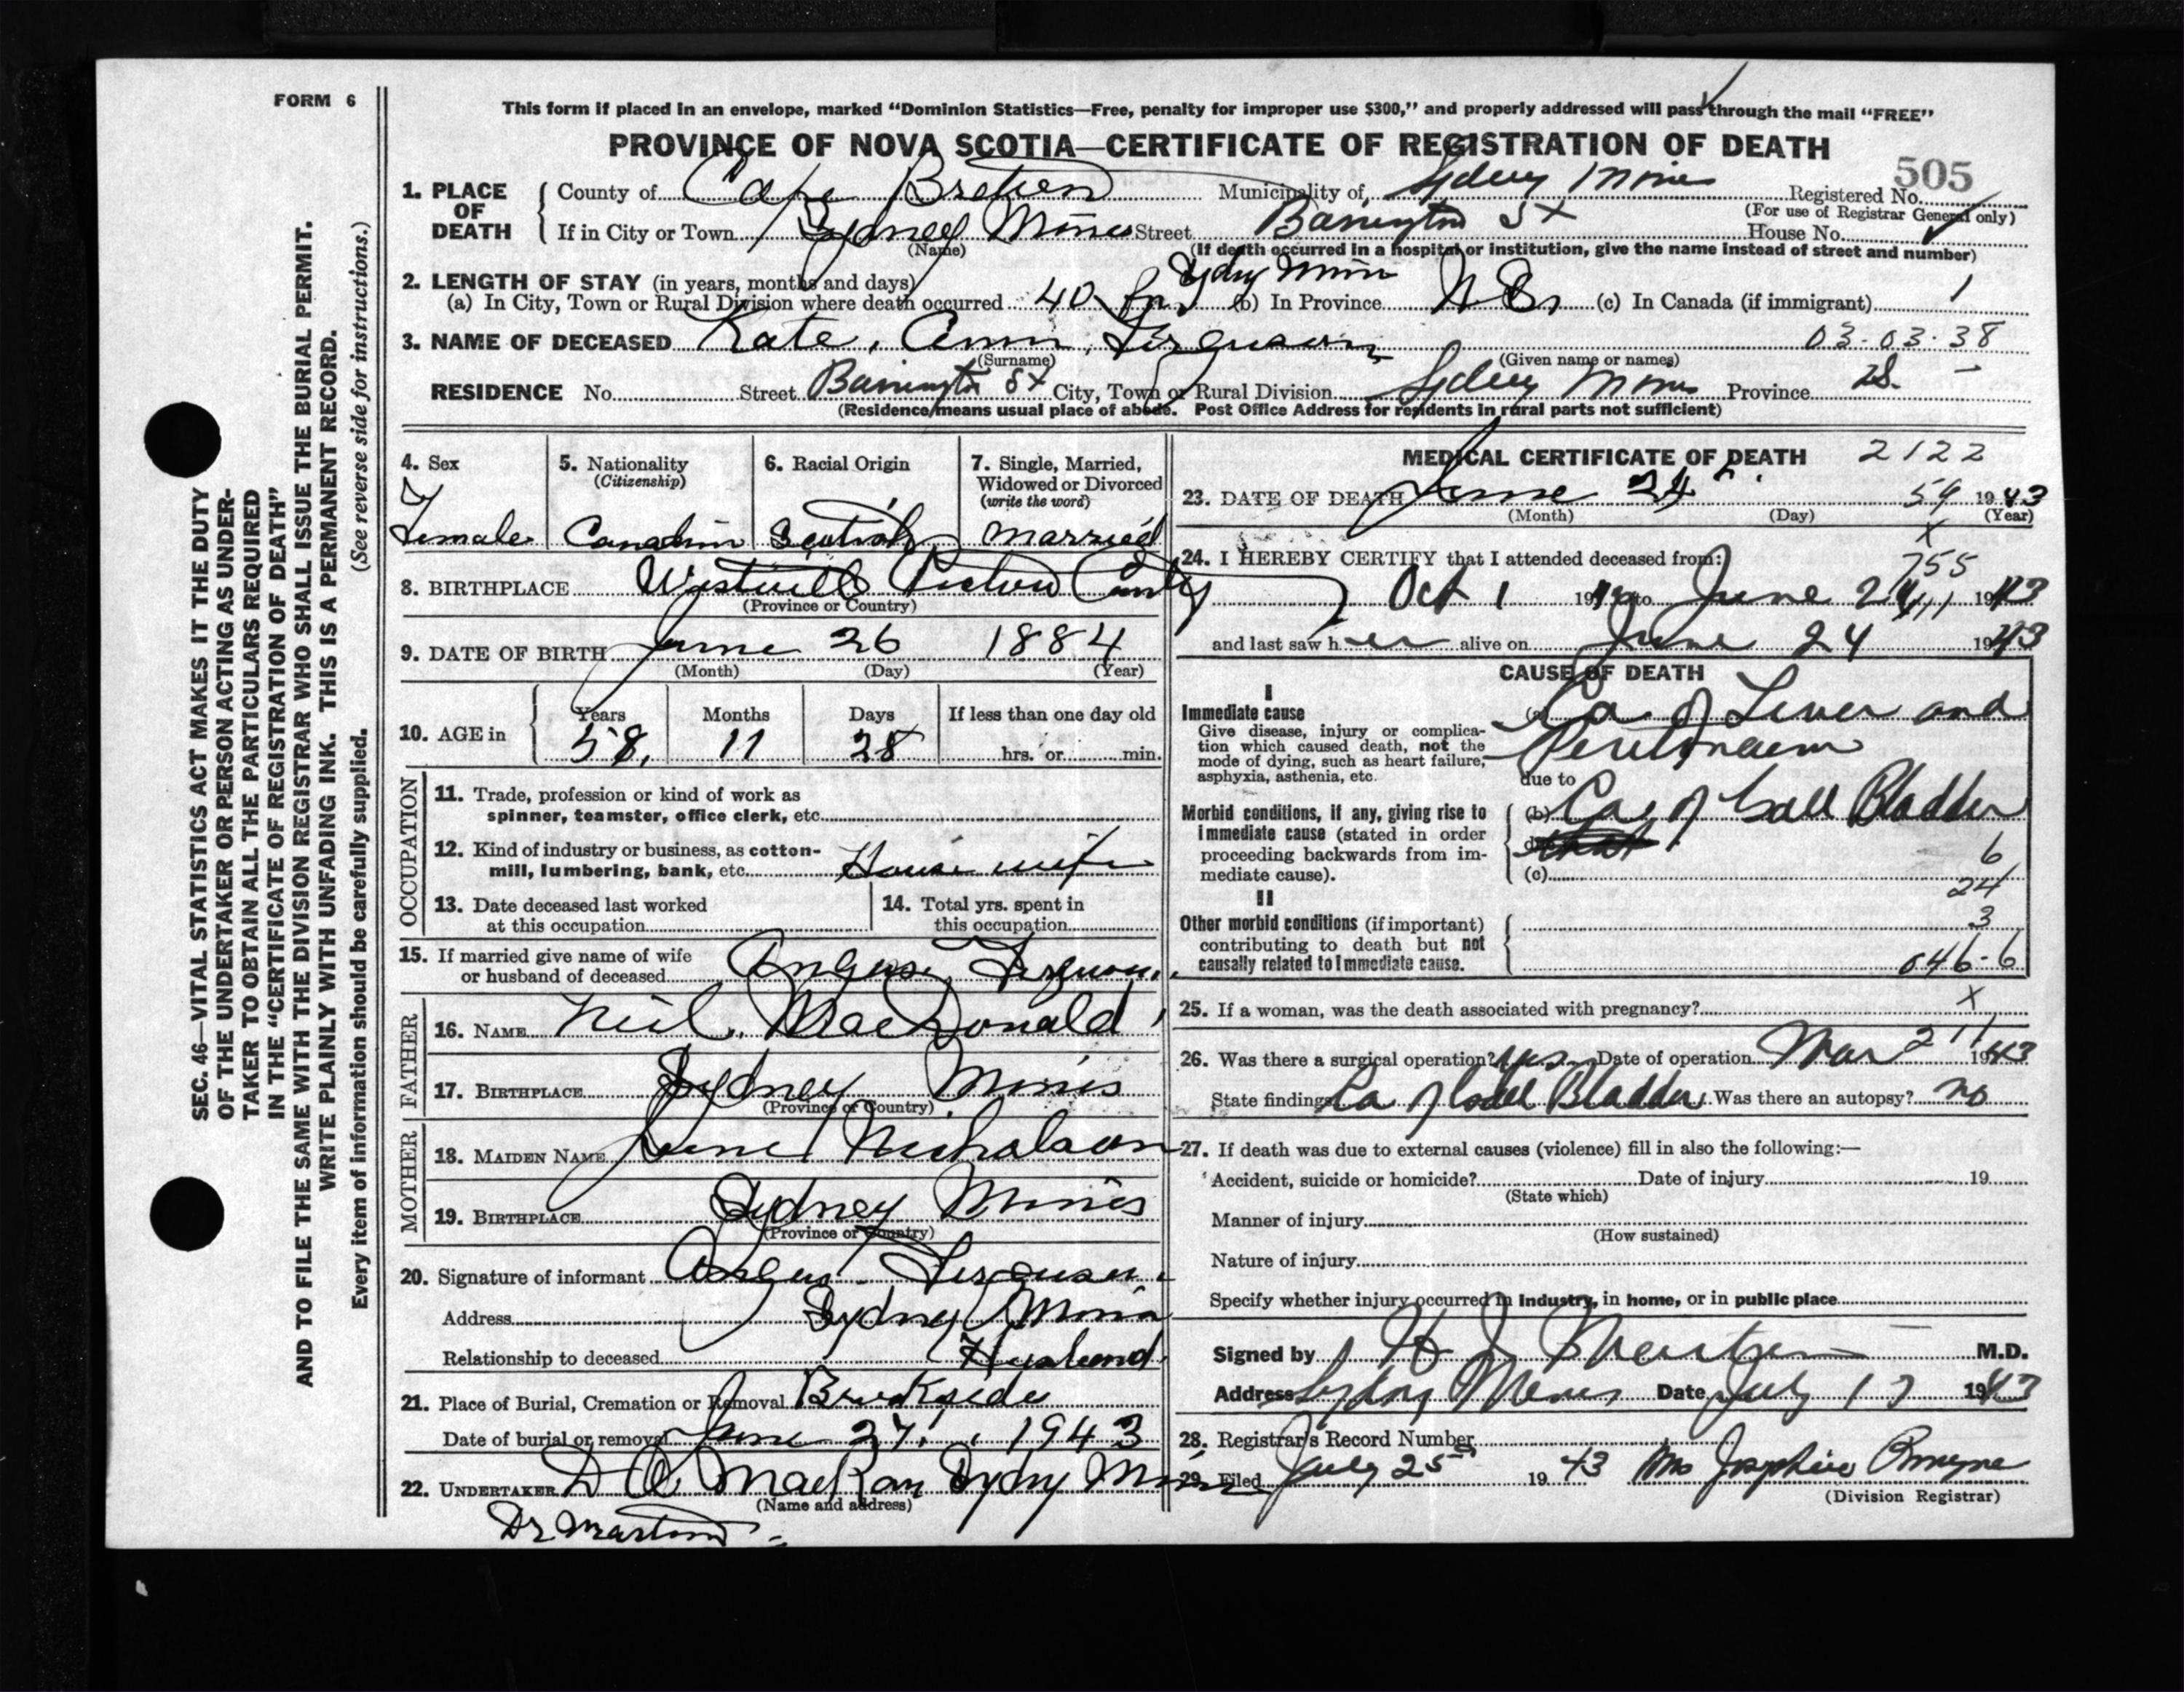 FORM 6
This form if placed in an envelope, marked "Dominion Statistics—Free, penalty for improper use $300," and properly addressed will pass through the mail "FREE"
PROVINCE OF NOVA SCOTIA—CERTIFICATE OF REGISTRATION OF DEATH
505
1. PLACE OF DEATH County of Cape Breton Municipality of Sydney Mines Registered No.
(For use of Registrar General only)
If in City or Town Sydney Mines Street Barrington St House No.
(Name)
(If death occurred in a hospital or institution, give the name instead of street and number)
2. LENGTH OF STAY (in years, months and days) Sydny Mines
(a) In City, Town or Rural Division where death occurred 40 (b) In Province N S (c) In Canada (if immigrant)
3. NAME OF DECEASED Kate, Ann, Ferguson 03-03-38
(Surname) (Given name or names)
RESIDENCE No. Street Barrington St City, Town or Rural Division Sydney Mines Province
(Residence means usual place of abode. Post Office Address for residents in rural parts not sufficient)
4. Sex
Female
5. Nationality
(Citizenship)
Canadian
6. Racial Origin
Scotish
7. Single, Married,
Widowed or Divorced
(write the word)
Married
8. BIRTHPLACE Westville Pictou County
(Province or Country)
9. DATE OF BIRTH June 26 1884
(Month) (Day) (Year)
10. AGE in Years Months Days If less than one day old
58, 11 28 hrs. or min.
OCCUPATION
11. Trade, profession or kind of work as
spinner, teamster, office clerk, etc.
12. Kind of industry or business, as cotton-
mill, lumbering, bank, etc. House wife
13. Date deceased last worked
at this occupation
14. Total yrs. spent in
this occupation
15. If married give name of wife
or husband of deceased Angus Ferguson
FATHER
16. NAME Neil MacDonald
17. BIRTHPLACE Sydney Mines
(Province or Country)
MOTHER
18. MAIDEN NAME Nicholson
19. BIRTHPLACE Sydney Mines
(Province or Country)
20. Signature of informant Angus Ferguson
Address Sydney Mines
Relationship to deceased Husband
21. Place of Burial, Cremation or Removal Brookside
Date of burial or removal June 27, 1943
22. UNDERTAKER D A MacKay Sydny Mines
(Name and address)
Dr Martin
MEDICAL CERTIFICATE OF DEATH 2122
23. DATE OF DEATH June 24 59 1943
(Month) (Day) (Year)
24. I HEREBY CERTIFY that I attended deceased from: X
755
Oct 1 19 to June 24 1943
and last saw her alive on June 24 1943
CAUSE OF DEATH
I
Immediate cause
Give disease, injury or complica-
tion which caused death, not the
mode of dying, such as heart failure,
asphyxia, asthenia, etc.
(a) Ca of Liver and
Peritonaeum
due to
Morbid conditions, if any, giving rise to
immediate cause (stated in order
proceeding backwards from im-
mediate cause).
(b) Ca of Gall Bladder
6
(c)
24
II
Other morbid conditions (if important)
contributing to death but not
causally related to immediate cause.
3
046-6
25. If a woman, was the death associated with pregnancy? X
26. Was there a surgical operation? yes Date of operation Mar 1943
State findings Ca of Gall Bladder Was there an autopsy? no
27. If death was due to external causes (violence) fill in also the following:—
Accident, suicide or homicide? Date of injury 19
(State which)
Manner of injury
(How sustained)
Nature of injury
Specify whether injury occurred in industry, in home, or in public place
Signed by H J Martin M.D.
Address Sydney Mines Date July 1943
28. Registrar's Record Number
29. Filed July 25 1943 Mrs Josephine
(Division Registrar)
SEC. 46—VITAL STATISTICS ACT MAKES IT THE DUTY
OF THE UNDERTAKER OR PERSON ACTING AS UNDER-
TAKER TO OBTAIN ALL THE PARTICULARS REQUIRED
IN THE "CERTIFICATE OF REGISTRATION OF DEATH"
AND TO FILE THE SAME WITH THE DIVISION REGISTRAR WHO SHALL ISSUE THE BURIAL PERMIT.
WRITE PLAINLY WITH UNFADING INK. THIS IS A PERMANENT RECORD.
Every item of information should be carefully supplied. (See reverse side for instructions.)